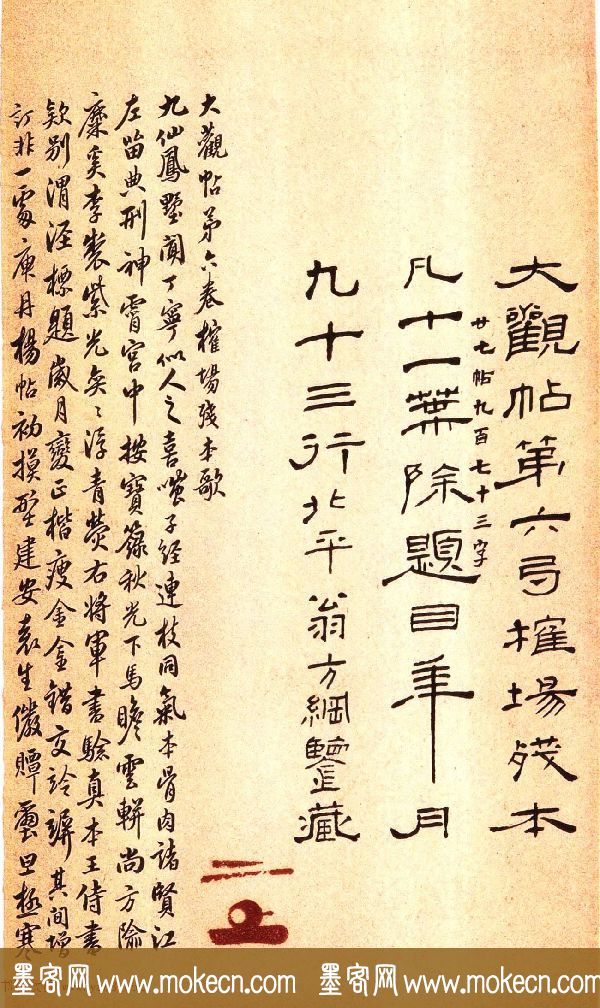 大觀帖第六弓摧場殘本
廿七帖九百七十三字
凡十一葉除題目年月
九十三行北平翁方綱鑒藏
大觀帖第六卷搉場殘本歌
九仙鳳墅闻丁寧似人之喜嗤子經連枝同氣本骨肉諸賢江
左留典刑神霄宮中按寶籙秋光下馬瞻雲軿尚方隃
麋奚李製紫光奂奂浮青熒右將軍書驗真本王侍書
欵別渭涇標題歲月變正楷瘦金金錯交詅其間增
訂非一處庚丹楊帖初摸型建安袁生儆贉
墨客网 www.mokecn.com 墨客网 www.mokecn.com